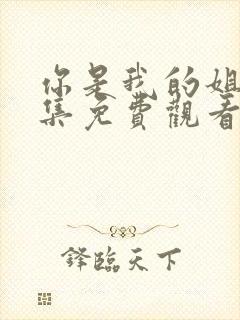 你是我的姐
集免費觀看
鋒臨天下